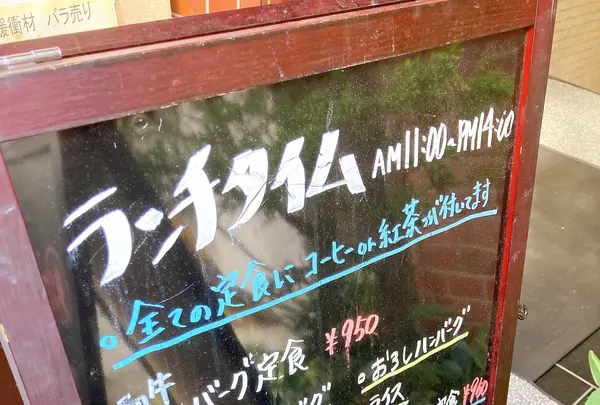 緩衝材 バラ売り
ランチタイム AM11:00~PM14:00
○全ての定食にコーヒーor紅茶が付いてます
和牛
ハンバーグ定食 ¥950
○おろしハンバーグ
ライス
定食 ¥950